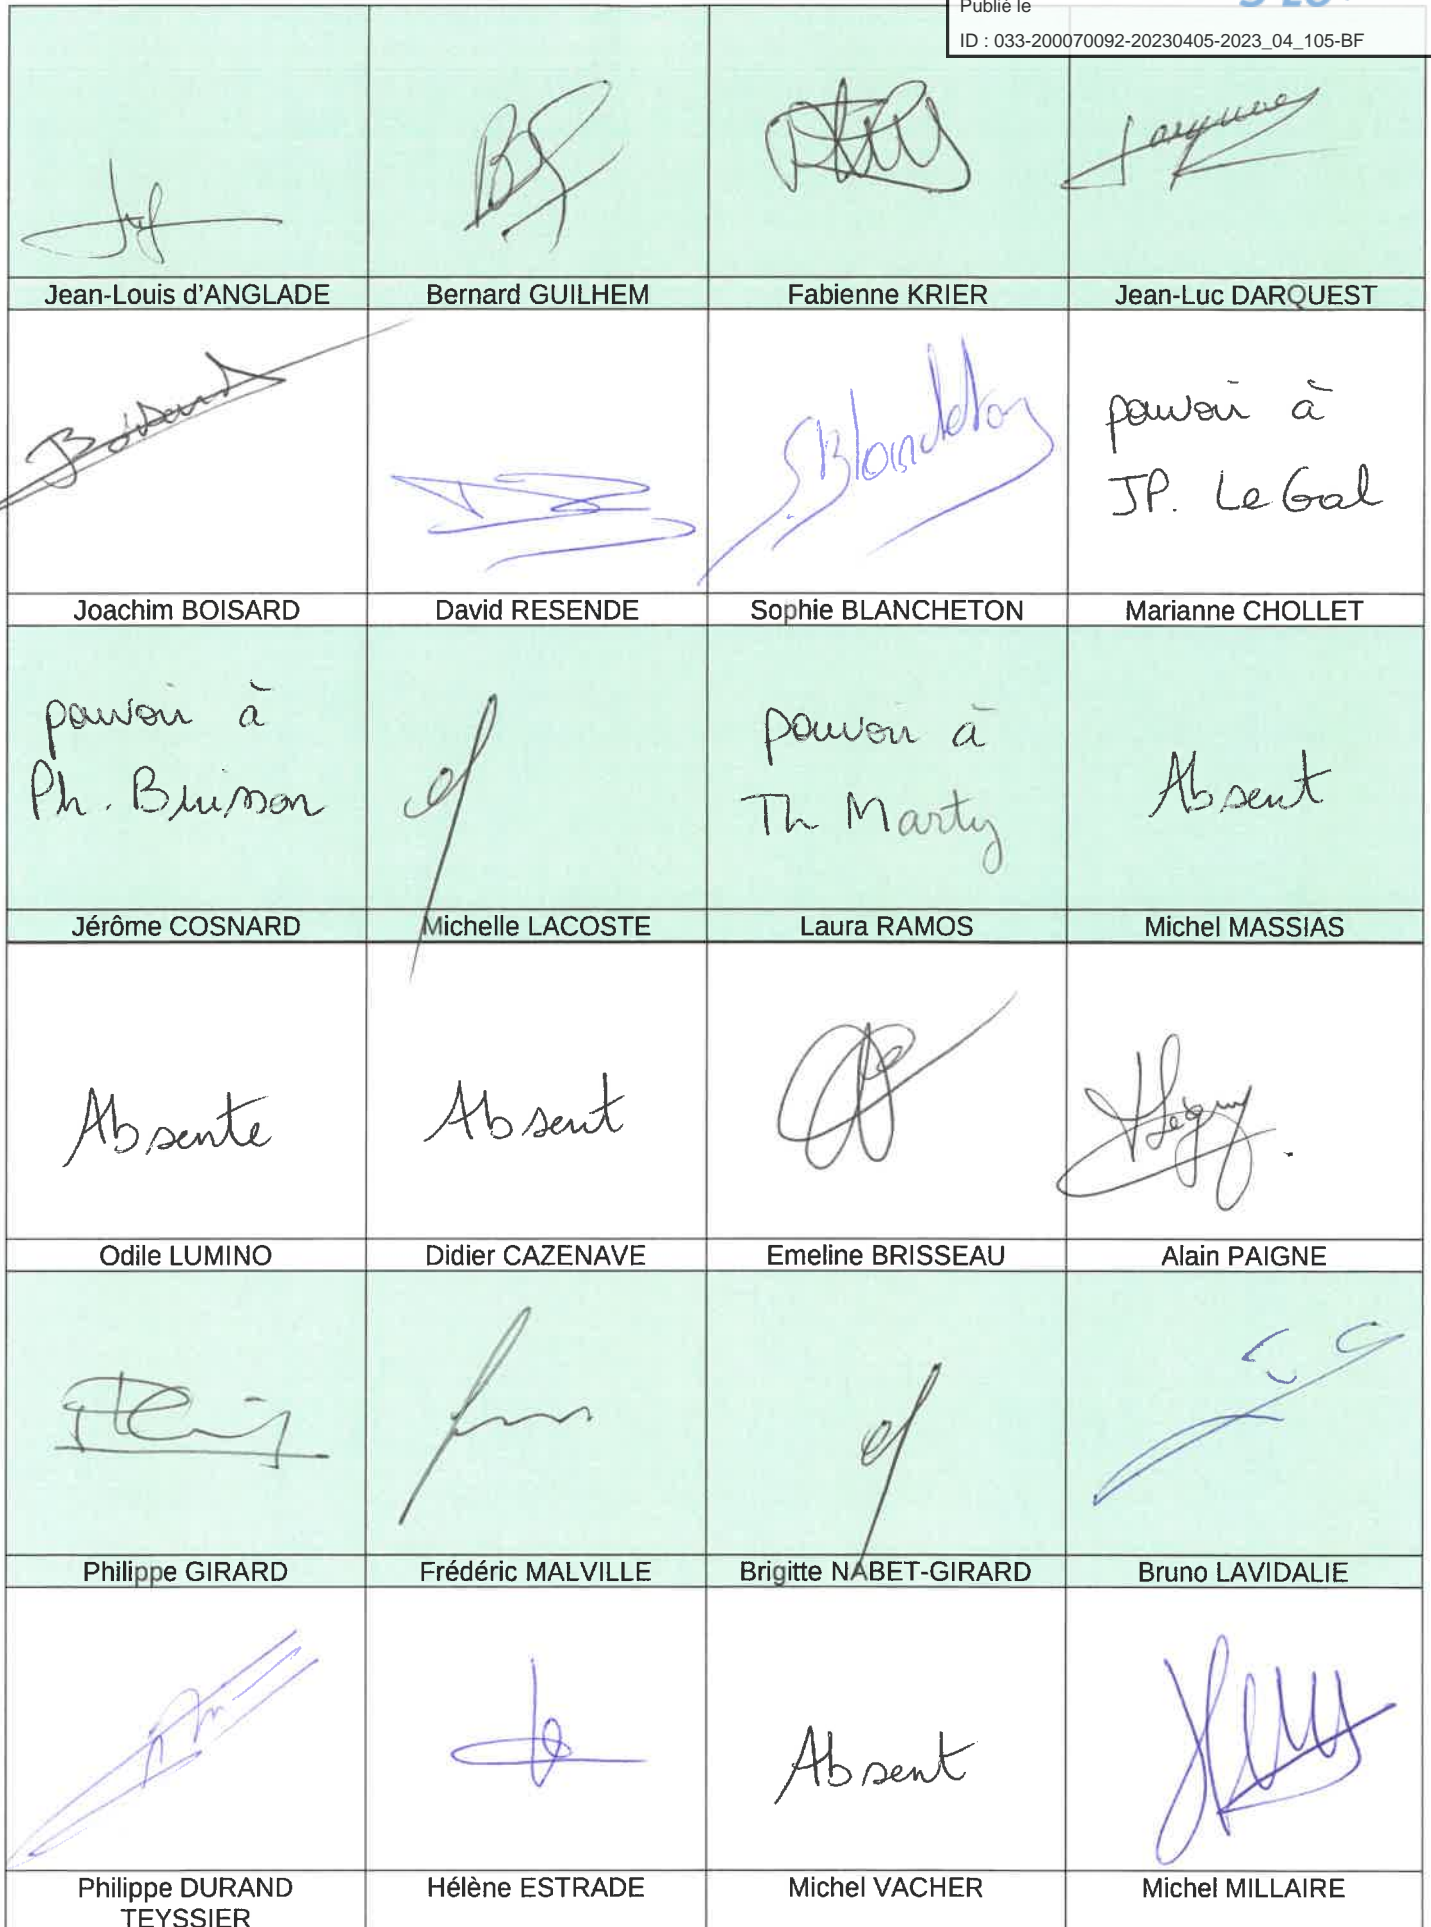 Publié le
ID : 033-200070092-20230405-2023_04_105-BF
Jean-Louis d'ANGLADE
Bernard GUILHEM
Fabienne KRIER
Jean-Luc DARQUEST
Boisard
S.Blancheton
pouvoir à
JP. Le Gal
Joachim BOISARD
David RESENDE
Sophie BLANCHETON
Marianne CHOLLET
pouvoir à
Ph. Buisson
pouvoir à
Th Marty
Absent
Jérôme COSNARD
Michelle LACOSTE
Laura RAMOS
Michel MASSIAS
Absente
Absent
Odile LUMINO
Didier CAZENAVE
Emeline BRISSEAU
Alain PAIGNE
Philippe GIRARD
Frédéric MALVILLE
Brigitte NABET-GIRARD
Bruno LAVIDALIE
Absent
Philippe DURAND
TEYSSIER
Hélène ESTRADE
Michel VACHER
Michel MILLAIRE